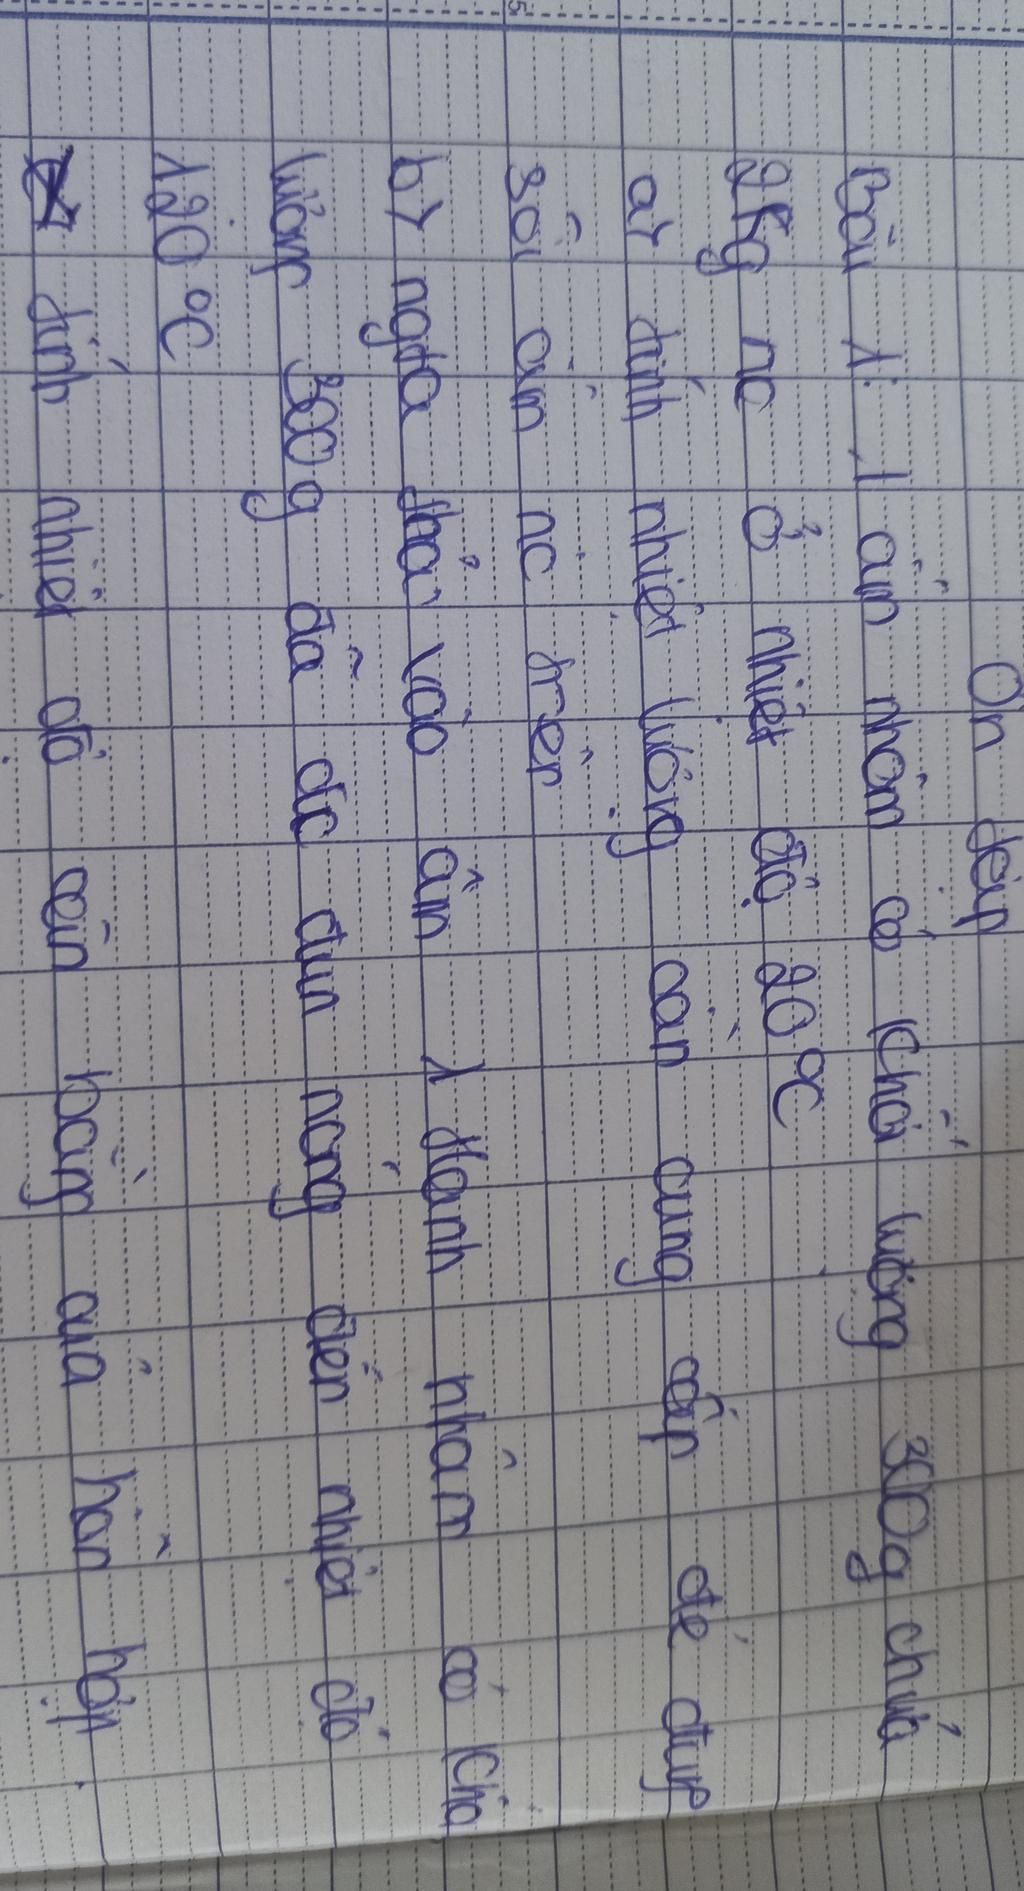 Ôn tập
Bài 1: 1 ấm nhôm có khối lượng 300g chứa
2kg nc ở nhiệt độ 20°C
a, tính nhiệt lượng cần cung cấp để đun
sôi ấm nc trên
b, ngta thả vào ấm 1 thanh nhôm có khố
lượng 300g đã đc đun nóng đến nhiệt độ
120°C
tính nhiệt độ cân bằng của hỗn hợp